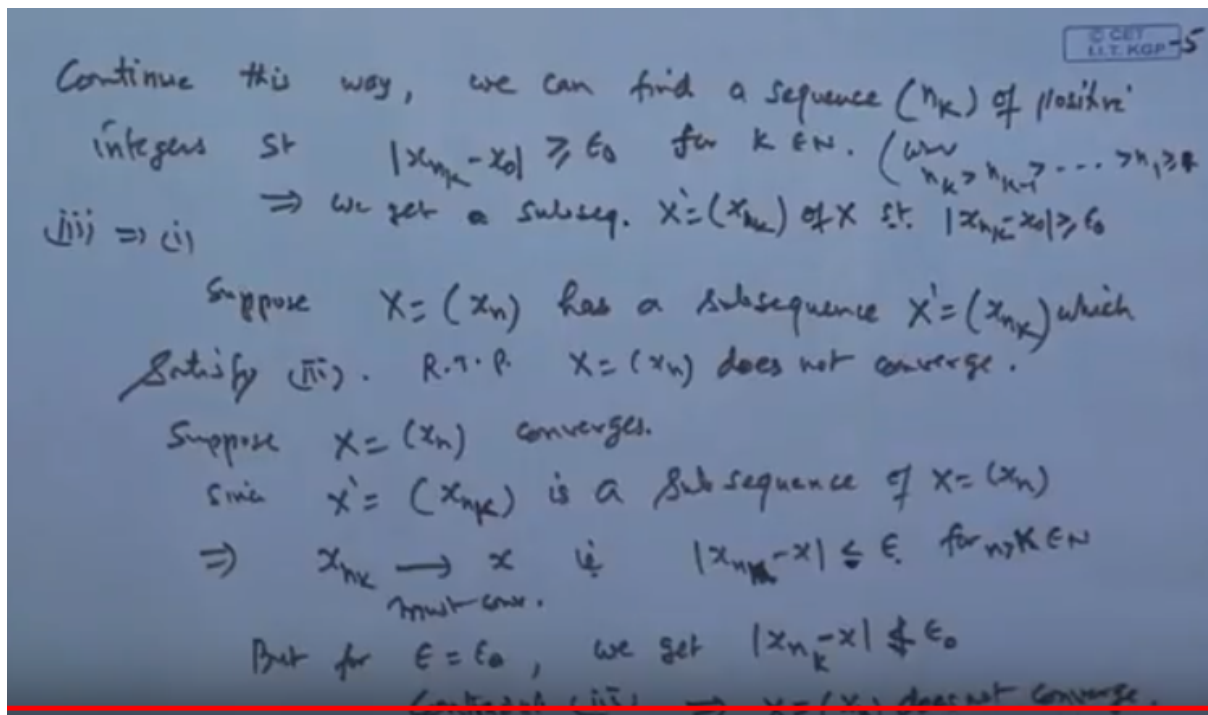 © CET
I.I.T. KGP -5
Continue this way, we can find a sequence (n_k) of positive
integers st |x_{n_k} - x_0| ≥ ε_0 for k ∈ N. (
n_k > n_{k-1} > ---- > n_1 ≥
⇒ we get a subseq. X' = (x_{n_k}) of X st. |x_{n_k} - x_0| ≥ ε_0
(iii) ⇒ (i)
Suppose X = (x_n) has a subsequence X' = (x_{n_k}) which
Satisfy (iii). R.T.P. X = (x_n) does not converge.
Suppose X = (x_n) converges.
Since X' = (x_{n_k}) is a Subsequence of X = (x_n)
⇒ x_{n_k} → x ie |x_{n_k} - x| < ε for n ≥ K ∈ N
must conv.
But for ε = ε_0, we get |x_{n_k} - x| ≮ ε_0
(iii) ⇒ X = (x_n) does not converge.